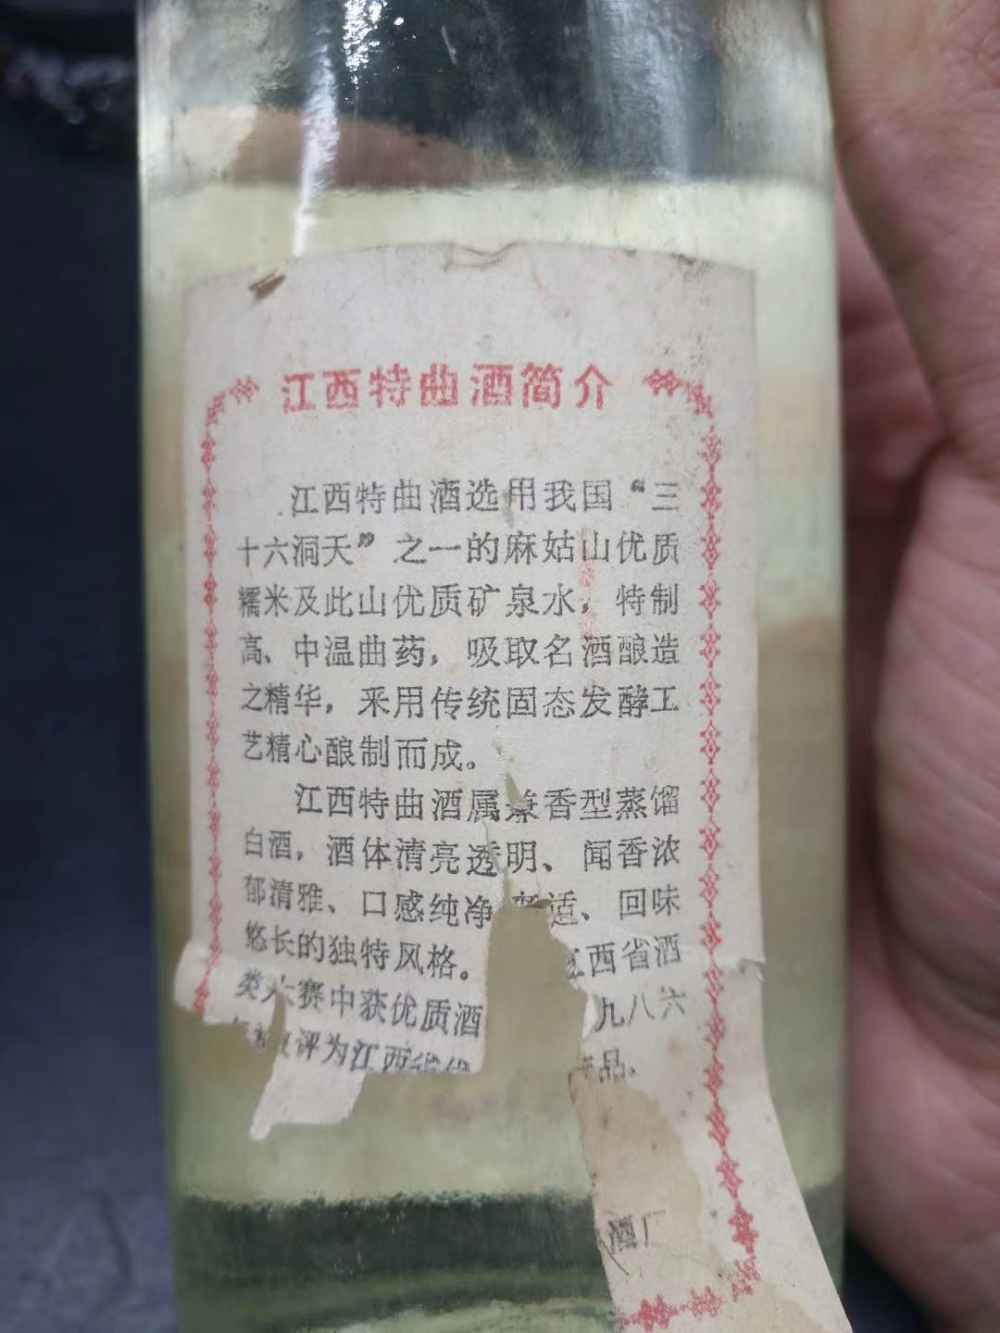 江西特曲酒简介
江西特曲酒选用我国“三
十六洞天”之一的麻姑山优质
糯米及此山优质矿泉水，特制
高、中温曲药，吸取名酒酿造
之精华，采用传统固态发酵工
艺精心酿制而成。
江西特曲酒属兼香型蒸馏
白酒，酒体清亮透明、闻香浓
郁清雅、口感纯净 适、回味
悠长的独特风格。 江西省酒
类大赛中获优质酒 九八六
评为江西省 品。
酒厂